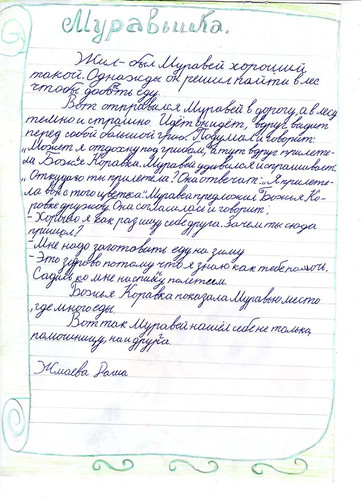 Муравьишка.
Жил-был Муравей хороший
такой. Однажды он решил пойти в лес
чтобы добыть еду.
Вот отправился Муравей в дорогу, а в лесу
темно и страшно. Идёт-идёт, вдруг видит
перед собой большой гриб. Подумал и говорит:
„Может я отдохну под грибом, а тут вдруг прилете-
ла Божья Коравка. Муравей удивился и спрашивает:
„Откудого ты прилетела? Она отвечает: „Я прилете-
ла вон с того цветка". Муравка предложил Божьей Ко-
ровке дружбу. Она согласилась и говорит:
- Хорошо я как раз ищу себе друга. Зачем ты сюда
пришол?
- Мне надо заготовить еду на зиму
- Это здорово потому что я знаю как тебе помочь,
Садись ко мне на спинку полетеем.
Божья Коравка показала Муравью место
, где много еды.
Вот так Муравей нашёл себе не только
помощницу, на и друга.
Жмаева Даша